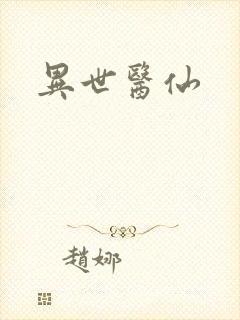 異世醫仙
趙娜